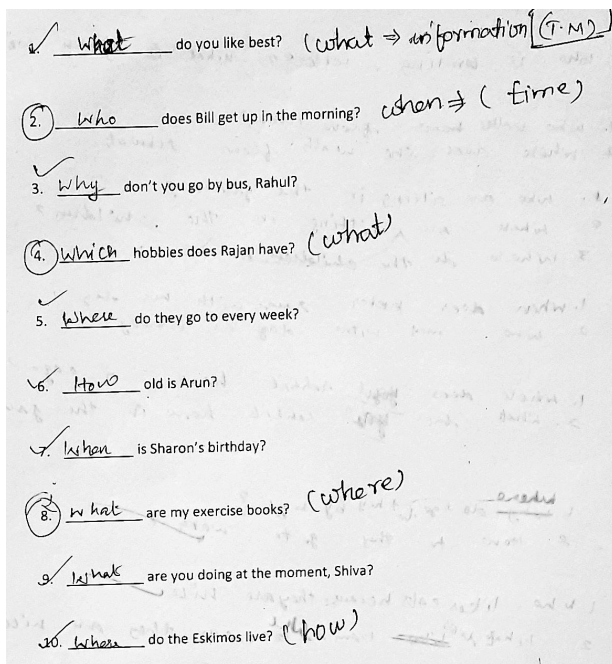 1. What do you like best? (what ⇒ information [(T.M)]
2. Who does Bill get up in the morning? when ⇒ (time)
3. Why don't you go by bus, Rahul?
4. Which hobbies does Rajan have? (what)
5. Where do they go to every week?
6. How old is Arun?
7. When is Sharon's birthday?
8. What are my exercise books? (where)
9. What are you doing at the moment, Shiva?
10. Where do the Eskimos live? (how)